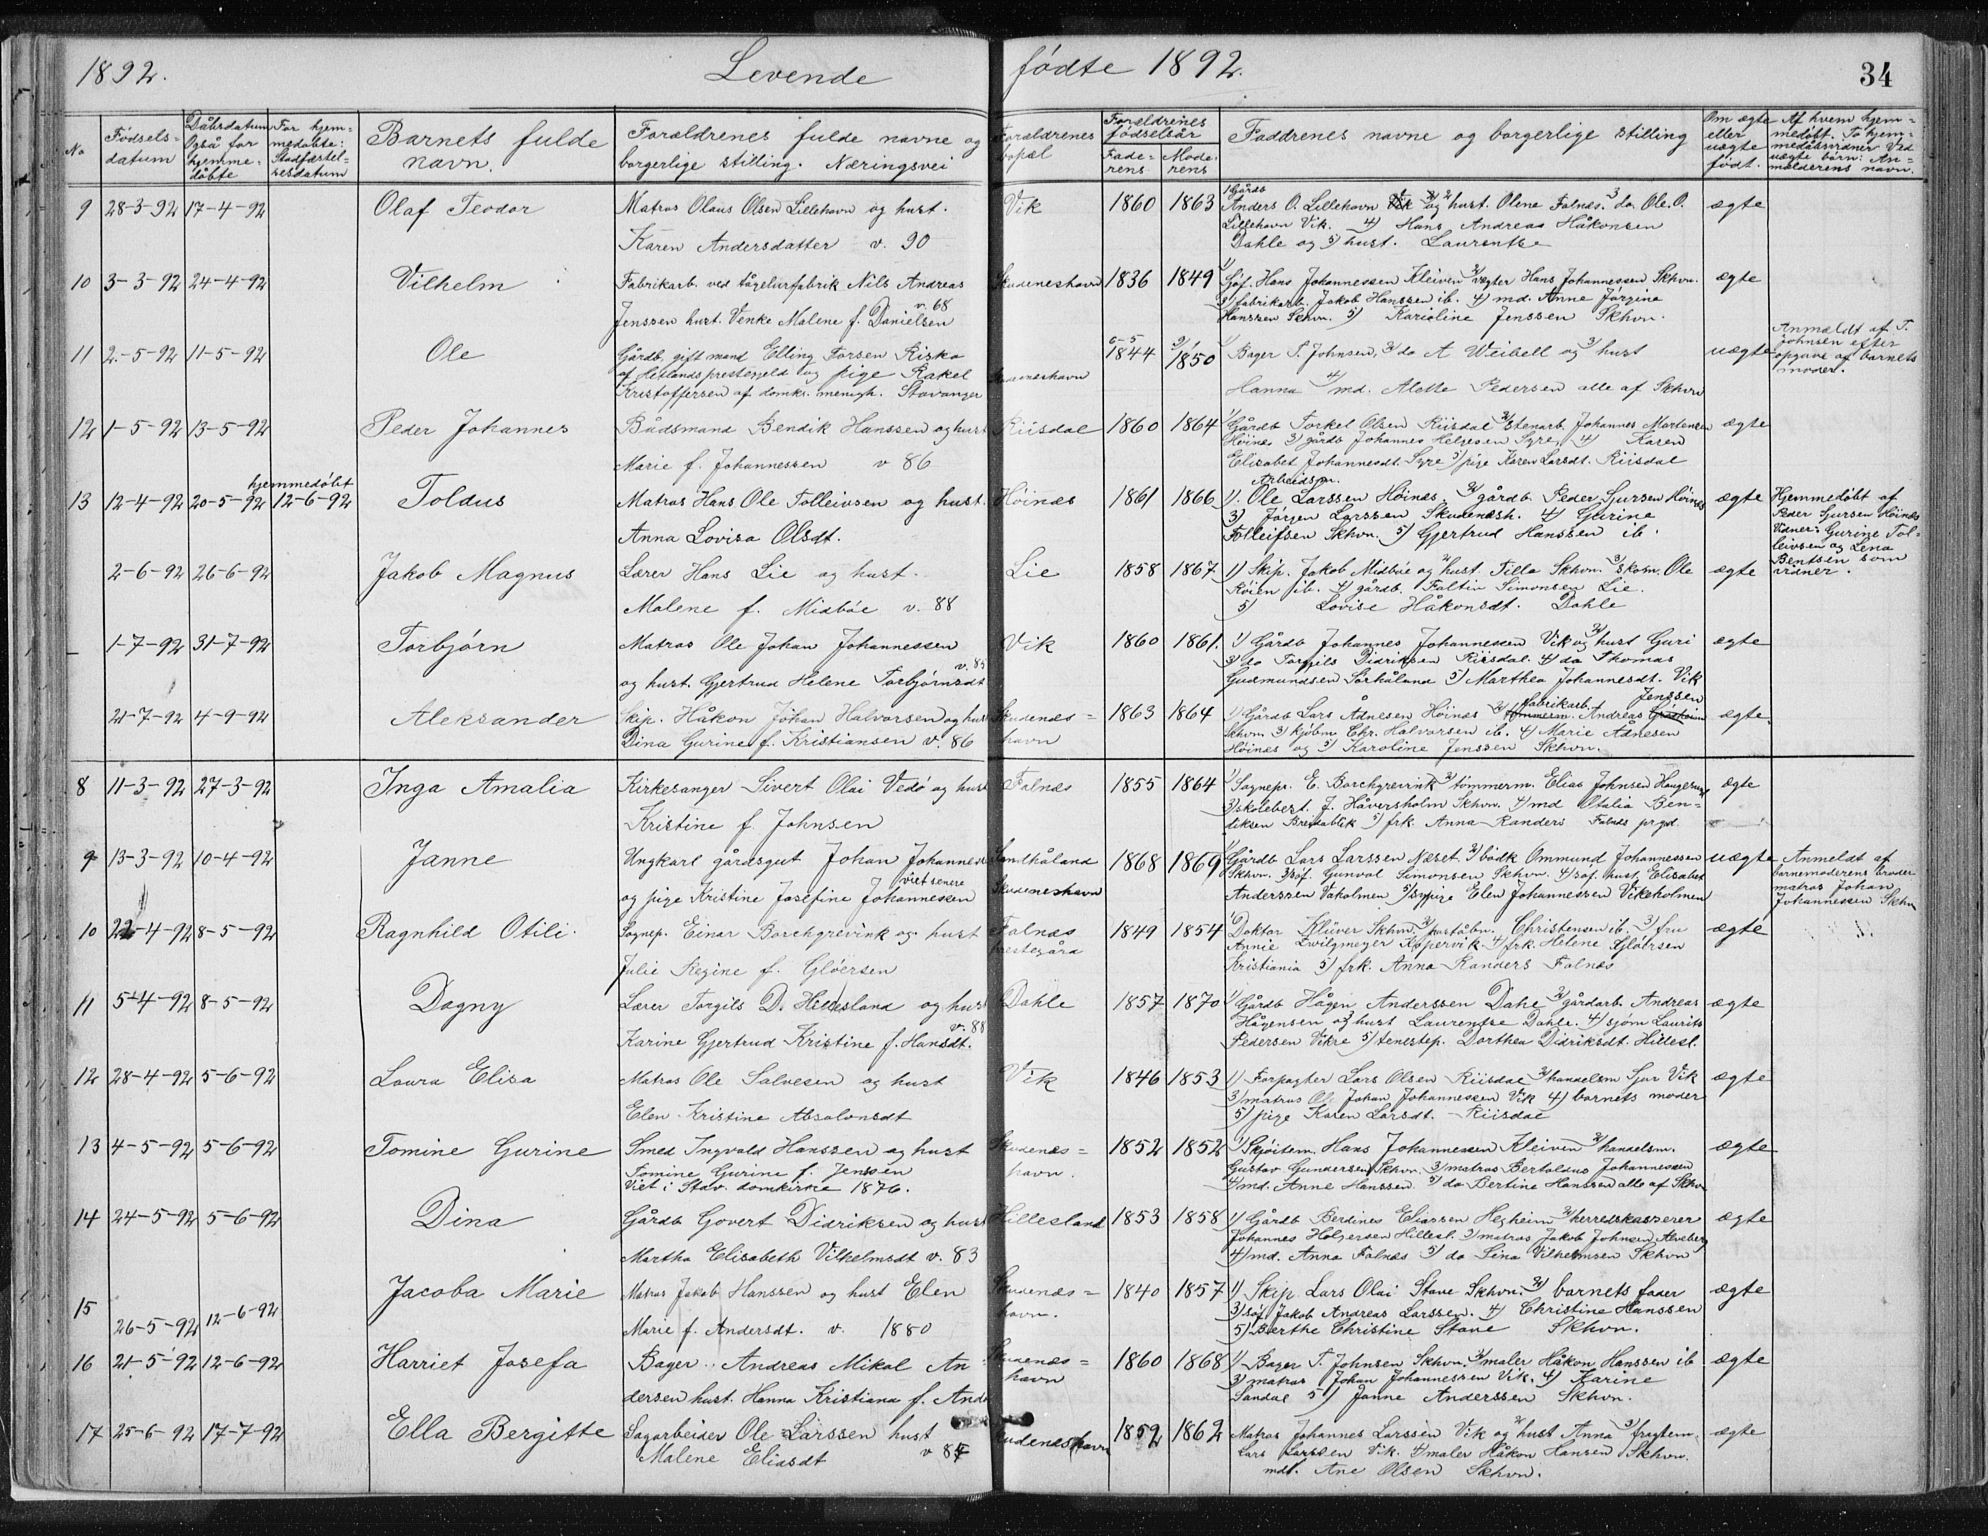 1892.
Levende
fødte 1892.
34
No
Fødsels-
datum
Dåbsdatum
Også for
hjemme-
døbte
For hjem-
medøbte:
Stadfæstel-
sesdatum
Barnets fulde
navn.
Forældrenes fulde navne og
borgerlige stilling. Næringsvei
Forældrenes
bopæl
Forældrenes
fødselsår
Fade-
rens
Mode-
rens
Faddrenes navne og borgerlige stilling
Om ægte
eller
uægte
født.
Af hvem hjem-
medøbt. To hjem-
medåbsvidner Ved
uægte børn: An-
melderens navn.
9 28-3-92 17-4-92 Olaf Teodor
Matros Olaus Olsen Lillehavn og hust.
Karen Andersdatter v. 90
Vik 1860 1863
1 Gårdb
Anders O. Lillehavn 2) og hust. Olene Falnes. 3 do. Ole. O.
Lillehavn Vik. 4) Hans Andreas Håkonsen
Dahle og 5) hust. Laurentse
ægte
10 3-3-92 24-4-92 Vilhelm
Fabrikarb. ved tågelurfabrik Nils Andreas
Jenssen hust. Venke Malene f. Danielsen v. 68
Skudeneshavn 1836 1849
1) Søf. Hans Johannessen Kleiven 2) vægter Hans Johannessen Skhvn.
3) fabrikarb. Jakob Hanssen ib. 4) md. Anne Jørgine
Hanssen Skhvn. 5) Karioline Jenssen Skhvn.
ægte
11 2-5-92 11-5-92 Ole
Gårdb. gift mand Elling Torsen Riska
af Hetlands prestegjeld og pige Rakel
Kristoffersen af domks. menigh. Stavanger
Skudeneshavn 1844 1850
Bager T. Johnsen, 2) do A Weibell og 3) hust
Hanna 4) md. Alette Pedersen alle af Skhvn
uægte
Anmeldt af T.
Johnsen efter
opgave af barnets
moder.
12 1-5-92 13-5-92 Peder Johannes
Bådsmand Bendik Hanssen og hust
Marie f. Johannessen v 86
Riisdal 1860 1864
1) Gårdb Torkel Olsen Riisdal 2) stenarb. Johannes Mortensen
Høines 3) gårdb Johannes Helgesen Syre, 4) Karen
Elisabet Johannesdt. Syre 5) pige Karen Larsdt. Riisdal
ægte
13 12-4-92 20-5-92 hjemmedøbt 12-6-92 Toldus
Matros Hans Ole Tolleivsen og hust.
Anna Lovisa Olsdt.
Høines 1861 1866
Arbeidsm.
1). Ole Larssen Høines. 2) gårdb. Peder Sjursen Høines
3) Jørgen Larssen Skudenesh. 4) Gurine
Tolleifsen Skhvn. 5) Gjertrud Hanssen ib.
ægte
Hjemmedøbt af
Peder Sjursen Høines
Vidner: Gurine Tol-
leivsen og Lena
Bentsen som
vidner.
2-6-92 26-6-92 Jakob Magnus
Lærer Hans Lie og hust.
Malene f. Midbøe v. 88
Lie 1858 1867
1) Skip. Jakob Midbøe og 2) hust. Tilla Skhvn. 3) skom. Ole
Røien ib. 4) gårdb. Faltin Simonsen Lie.
5) Lovise Håkonsdt. Dahle
ægte
1-7-92 31-7-92 Torbjørn
Matros Ole Johan Johannessen
og hust. Gjertrud Helene Torbjørnsdt v. 85
Vik 1860 1861.
1) Gårdb Johannes Johannessen Vik og 2) hust Guri
3) do Torgils Didriksen Riisdal. 4) do Thomas
Gudmundsen Sørhåland 5) Marthea Johannesdt. Vik
ægte
21-7-92 4-9-92 Aleksander
Skip. Håkon Johan Halvorsen og hust
Dina Gurine f. Kristiansen v. 86
Skudenes-
havn
1863 1864
1) Gårdb Lars Adnesen Høines 2) fabrikarb. Andreas Jenssen
Skhvn 3) kjøbm. Chr. Halvorsen ib. 4) Marie Adnesen
Høines og 5) Karoline Jenssen Skhvn.
ægte.
8 11-3-92 27-3-92 Inga Amalia
Kirkesanger Sivert Olai Vedø og hust
Kristine f. Johnsen
Falnes 1855 1864
1) Sognepr. E. Borchgrevink 2) tømmerm. Elias Johnsen Haugesund
3) skolebest. J. Håversholm Skhvn. 4) md Otalia Ben-
diksen Breidablik 5) frk. Anna Randers Falnes prgd.
ægte
9 13-3-92 10-4-92 Janne
Ungkarl gårdsgut Johan Johannes
og pige Kristine Josefine Johannessen
viet senere
Sandhåland
Skudeneshavn
1868 1869
1) Gårdb Lars Larssen Næset. 2) bødk Ommund Johannessen
Skhvn. 3) søf. Gunval Simonsen Skhvn. 4) søf. hust. Elisabet
Anderssen Vaholmen 5) sypige Elen Johannessen Vikeholmen
uægte
Anmeldt af
barnemoderens broder
matros Johan
Johannessen Skhvn
10 22-4-92 8-5-92 Ragnhild Otili.
Sognep. Einar Borchgrevink og hust
Julie Regine f. Gløersen
Falnes
prestegård
1849 1854
1) Doktor Klüver Skhvn. 2) poståbn. Christensen ib. 3) fru
Annie Zwilgmeyer Kopervik 4) frk. Helene Gløersen
Kristiania 5) frk. Anna Randers Falnes
ægte
11 5-4-92 8-5-92 Dagny
Lærer Torgils D. Hillesland og hust
Karine Gjertrud Kristine f. Hansdt. v. 88
Dahle 1857 1870
1) Gårdb Hågen Anderssen Dahe 2) gårdarb. Andreas
Hågensen og 3) hust Laurentse Dahle. 4) sjøm Laurits
Pedersen Vikre 5) tenestep. Dorthea Didriksdt. Hillesl.
ægte
12 28-4-92 5-6-92 Laura Elisa
Matros Ole Salvesen og hust
Elen Kristine Absalonsdt
Vik 1846 1853
1) Forpagter Lars Olsen Riisdal 2) handelsm Sjur Vik
3) matros Ole Johan Johannessen Vik 4) barnets moder
5) pige Karen Larsdt. Riisdal
ægte
13 4-5-92 5-6-92 Tomine Gurine
Smed Ingvald Hanssen og hust
Tomine Gurine f. Jenssen
Viet i Stav. domkirke 1876.
Skudenes-
havn.
1852 1852
1) Skjøitem. Hans Johannessen Kleiven 2) handelsm.
Gustav Gundersen Skhvn. 3) matros Bertoldus Johannessen
4) md. Anne Hanssen 5) do Bertine Hanssen alle af Skhvn
ægte
14 24-5-92 5-6-92 Dina
Gårdb Govert Didriksen og hust
Martha Elisabeth Vilhelmsdt v. 83
Hillesland 1853 1858
1) Gårdb Berdines Eliassen Hegheim 2) herredskasserer
Johannes Holgersen Hillesl. 3) matros Jakob Johnsen
4) md. Anna Falnes 5) do Lina Vilhelmsen Skhvn
ægte
15 26-5-92 12-6-92 Jacoba Marie
Matros Jakob Hanssen og hust Elen
Marie f. Andersdt. v. 1880
Skudenes-
havn.
1840 1857
1) Skip. Lars Olai Stave Skhvn. 2) barnets fader
3) søf. Jakob Andreas Larssen. 4) Christine Hanssen
5) Berthe Christine Stave Skhvn.
ægte
16 21-5-92 12-6-92 Harriet Josefa
Bager Andreas Mikal An-
dersen hust. Hanna Kristiana f. Ande
Skudenes-
havn
1860 1868
1) Bager T. Johnsen Skhvn. 2) maler Håkon Hanssen ib
3) matros Johan Johannessen Vik. 4) Karine
Sandal 5) Janne Anderssen Skhvn.
ægte
17 25-6-92 17-7-92 Ella Bergitte
Sagarbeider Ole Larssen hust
Malene Eliasdt v 84
Skudeneshavn 1859 1862
Matros Johannes Larssen Vik og 2) hust Anna 3) fragtem.
Lars Larssen Vik. 4) maler Håkon Hansen Skhvn.
mdt. Ane Olsen Skhvn.
ægte